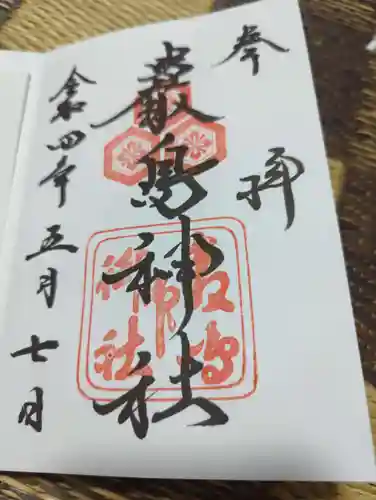 奉拝
嚴島神社
令和四年五月七日